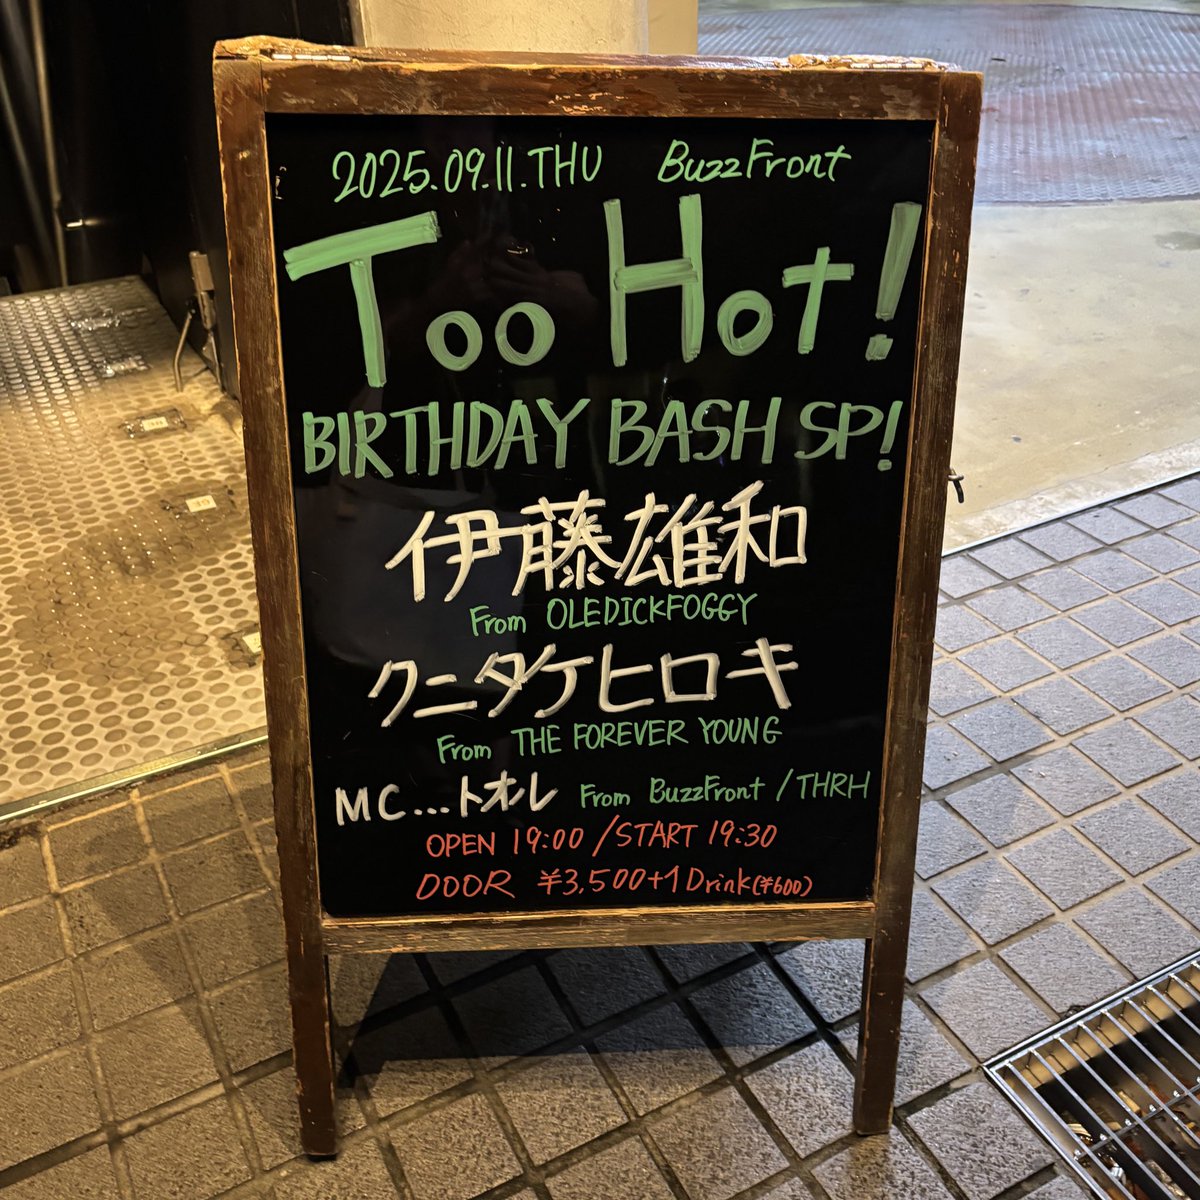 2025.09.11.THU BuzzFront
Too Hot!
BIRTHDAY BASH SP!
伊藤雄和
From OLEDICKFOGGY
クニタケヒロキ
From THE FOREVER YOUNG
MC...トオル From BuzzFront / THRH
OPEN 19:00 / START 19:30
DOOR ¥3,500+1Drink(¥600)